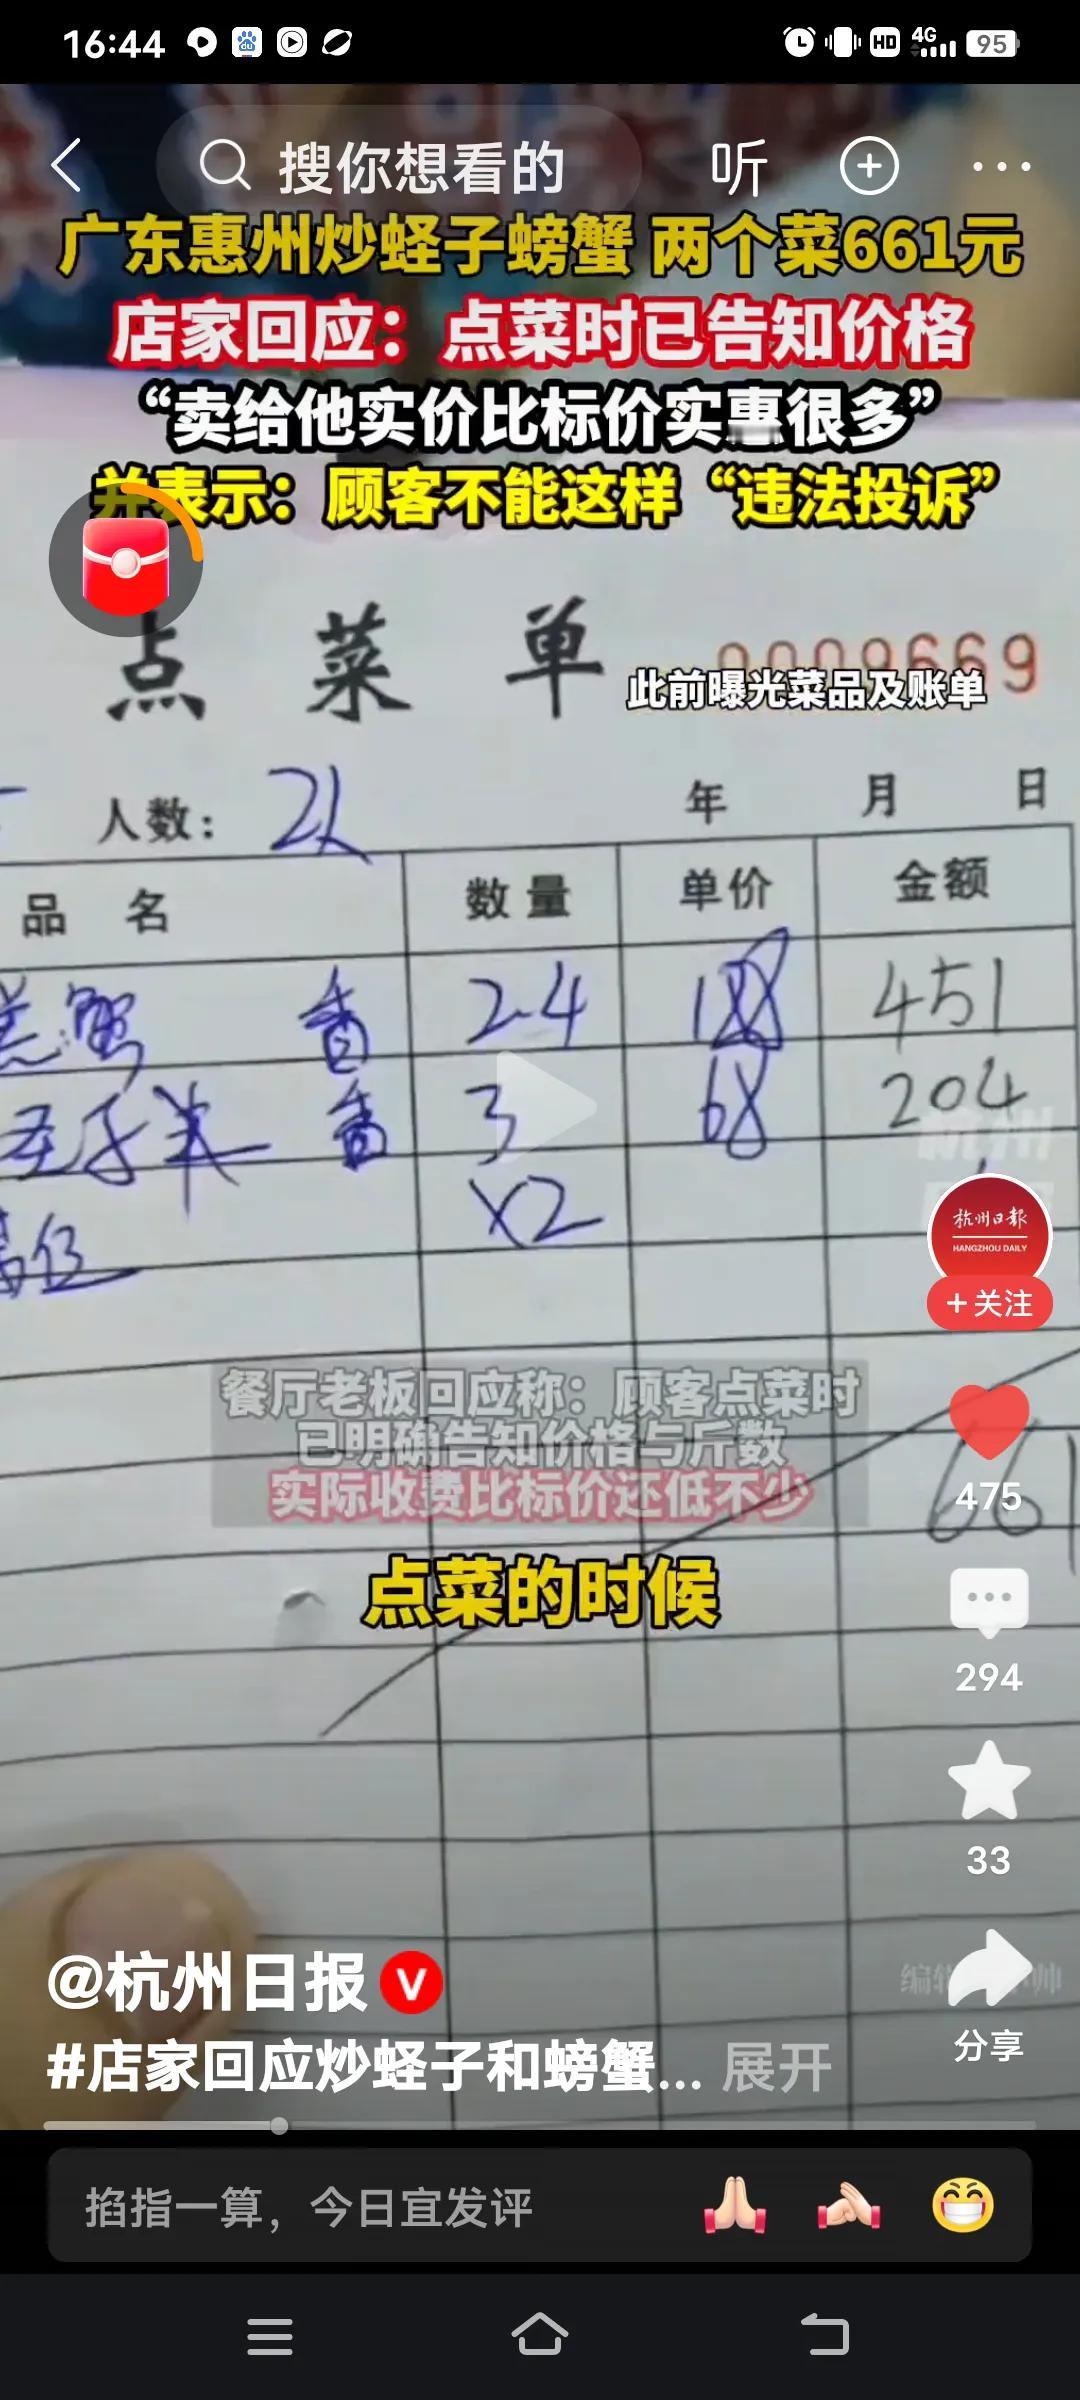 16:44
4G
HD
95
搜你想看的
听
广东惠州炒蛏子螃蟹 两个菜661元
店家回应：点菜时已告知价格
“卖给他实价比标价实惠很多”
并表示：顾客不能这样“违法投诉”
点菜单
0009669
此前曝光菜品及账单
人数：2人
年 月 日
品名 数量 单价 金额
蟹 香 2.4 188 451
圣子米 香 3 68 204
X2
杭州日报
HANGZHOU DAILY
+关注
餐厅老板回应称：顾客点菜时
已明确告知价格与斤数
实际收费比标价还低不少
661
475
点菜的时候
294
33
分享
@杭州日报
#店家回应炒蛏子和螃蟹... 展开
掐指一算，今日宜发评